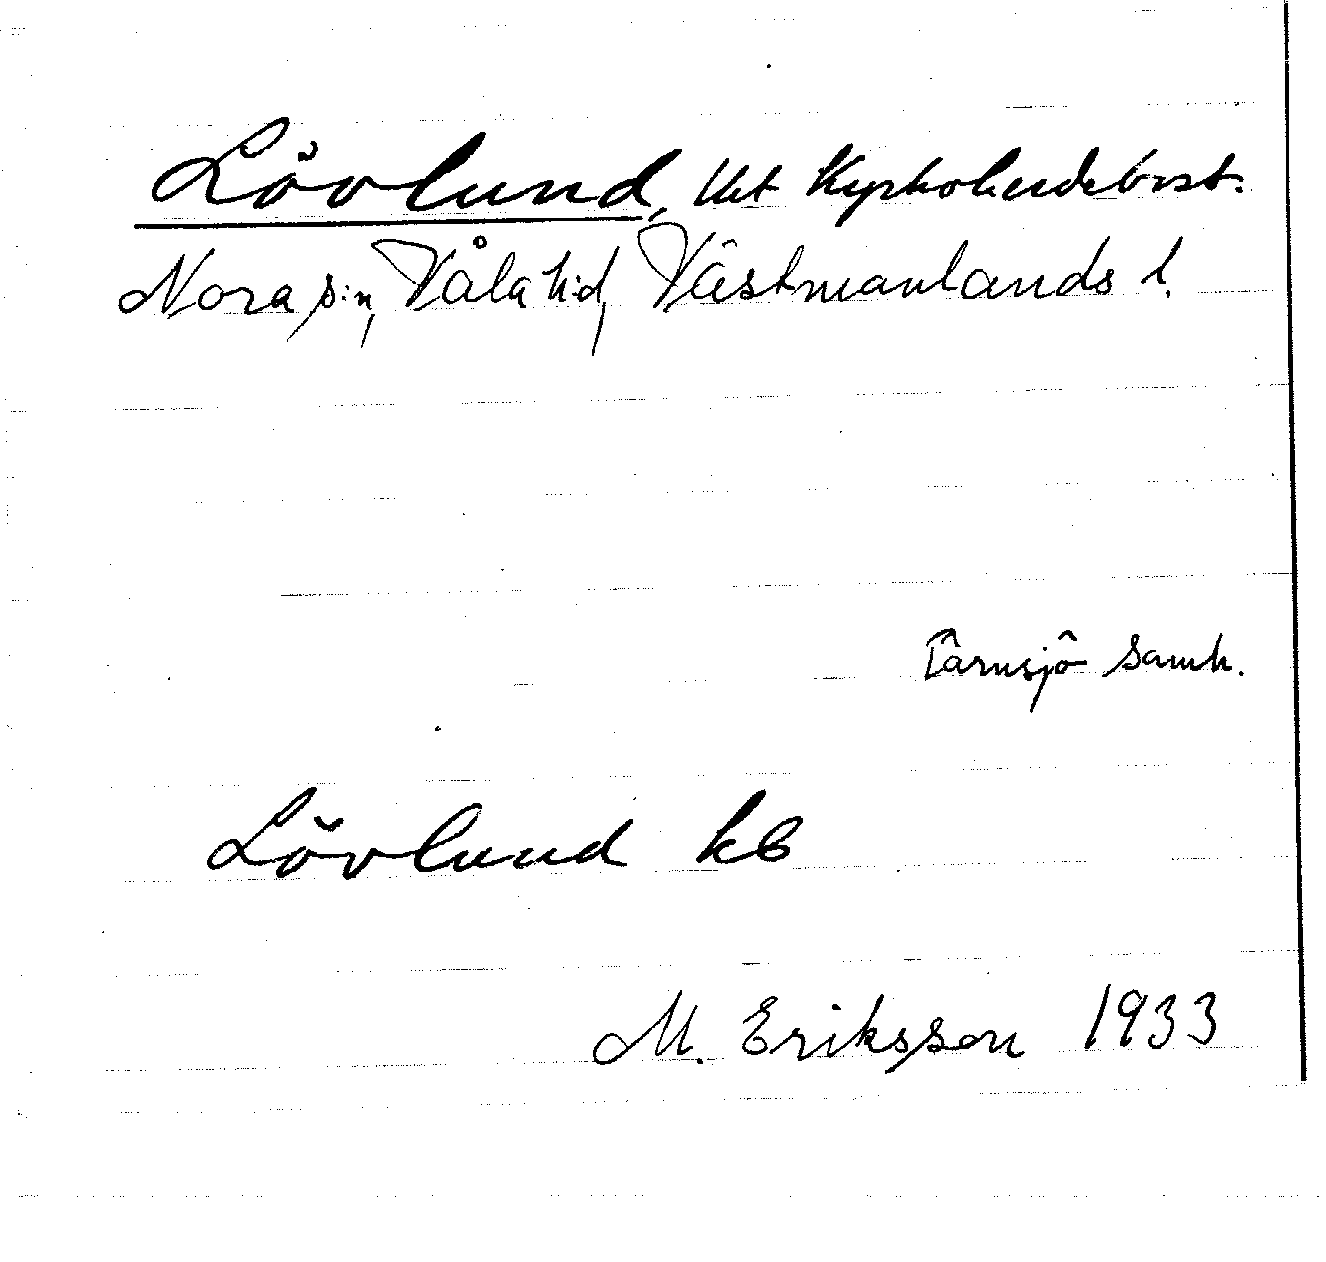 Lövlund, tkt Kyrkoherdebost.
Nora s:n, Våla hd, Västmanlands l.
Tärnsjö samh.
Lövlund kb
M. Eriksson 1933